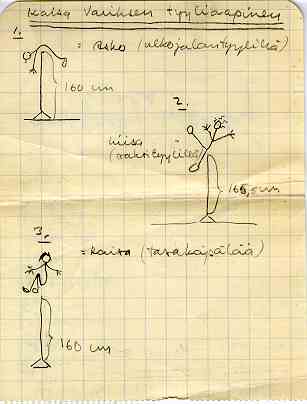 Kaisa Variksen tyyliaapinen
1.
= Esko (ulkojalantyylillä)
160 cm
2.
Liisa
(saksityylillä)
165,5 cm
3.
= Kaisa (tasakäpälää)
160 cm